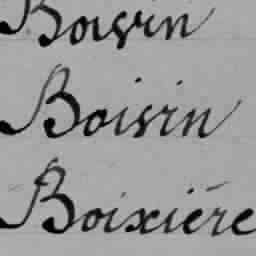 Boisin
Boisin
Boixiére